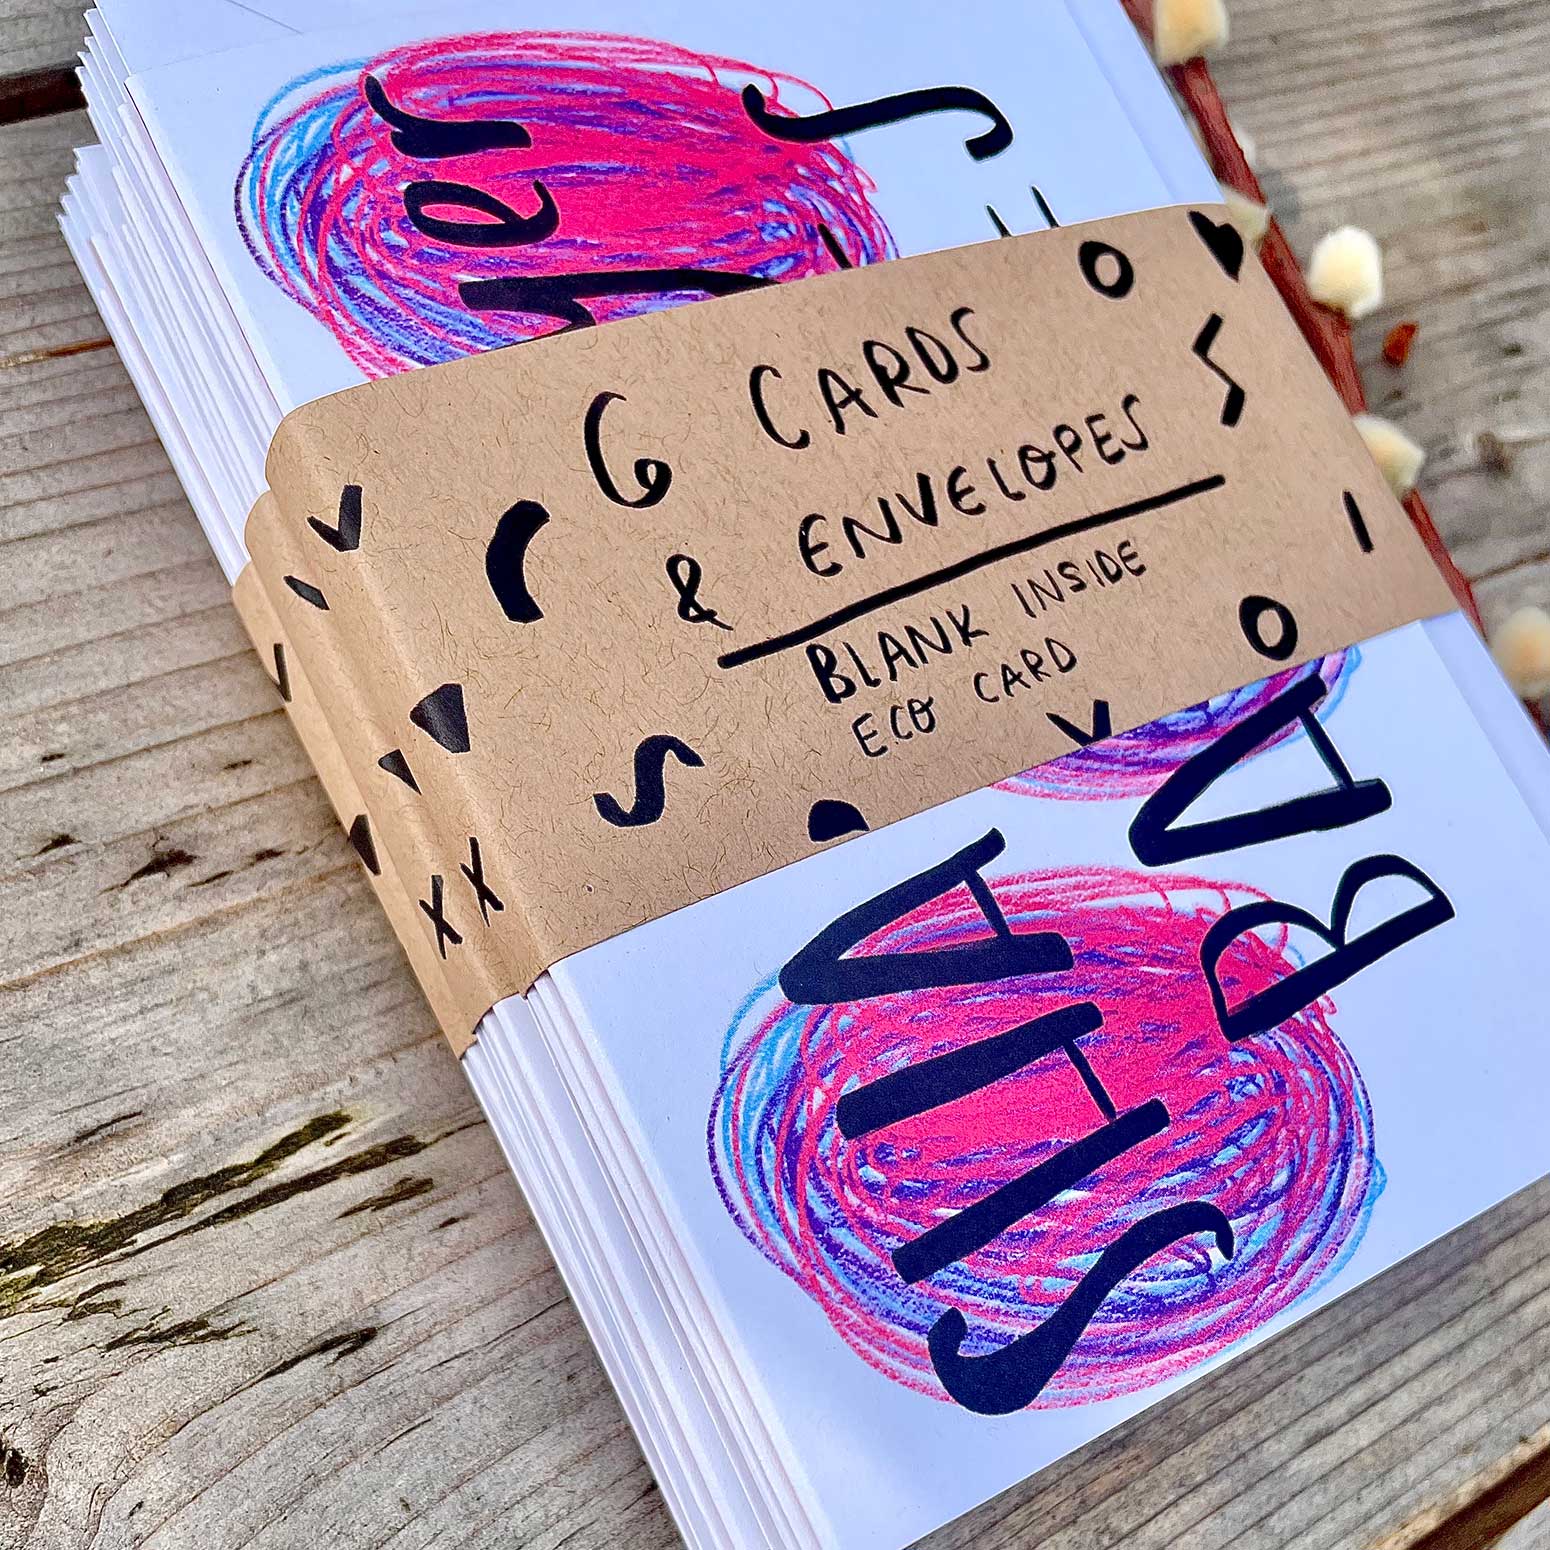 6 CARDS
& ENVELOPES
BLANK INSIDE
ECO CARD
SHA
BA